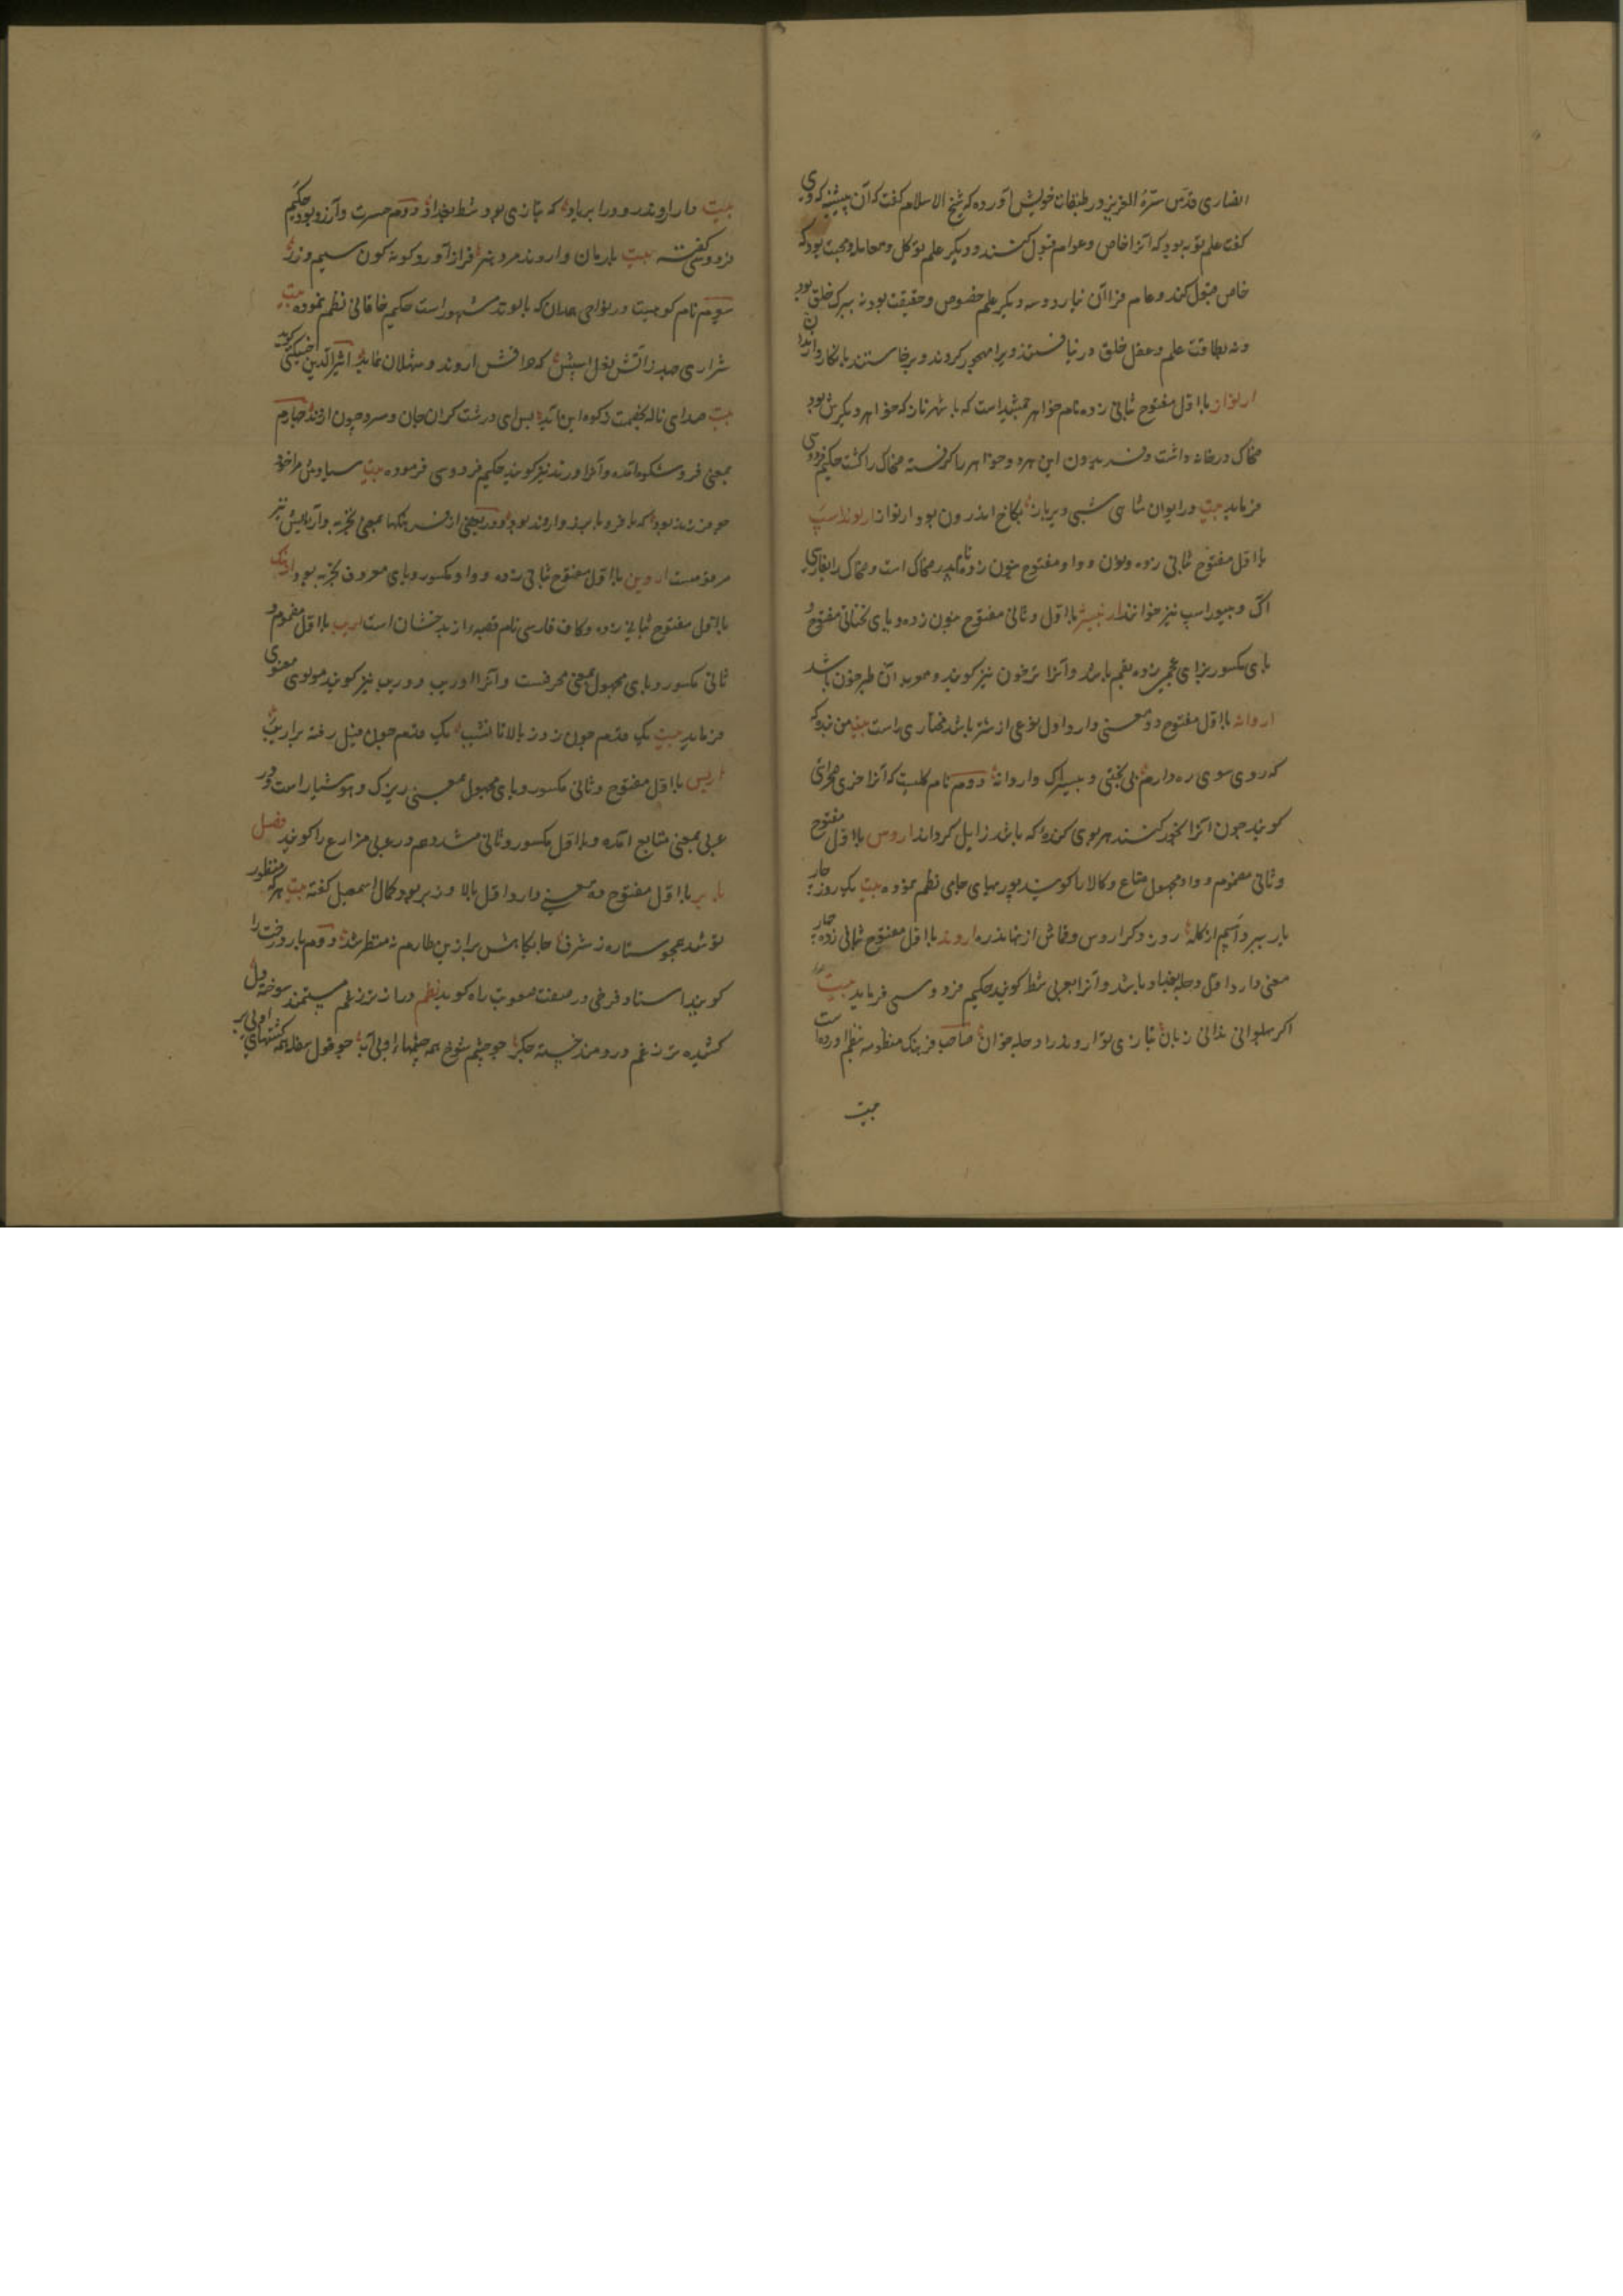 انصاری قدس سره العزیز در طبقات خویش آورده که شیخ الاسلام گفت که آن پیشینه که وی
گفت علم توبه بود که آنرا خاص و عوام قبول کنند و دیگر علم توکل و معامله و محبت بود که
خاص قبول کند و عام فرا آن نیارد و سه دیگر علم خصوص و حقیقت بود نه ببرک خلق بود
و نه بطاقت علم و عقل خلق در نیافتند و ویرا مهجور کردند و برخاستند بانکار
ارنواز با اول مفتوح ثانی زده نام خواهر جمشید است که با شهرناز که خواهر دیگرش بود
ضحاک در خانه داشت و فریدون این هر دو خواهر را گرفته ضحاک را کشت حکیم فردوسی
فرماید بیت در ایوان شاهی شبی دیریاز بکاخ اندرون بود ارنواز اروند اسپ
با اول مفتوح ثانی زده و نون و واو مفتوح بنون زده نام پدر ضحاک است و ضحاک را بفارسی
اک و بیوراسپ نیز خوانند با اول و ثانی مفتوح بنون زده و یای تحتانی مفتوح
بای مکسور بزای عجمی زده بقم باشد و آنرا ترخون نیز گویند و طبرخون باشد
اروانه با اول مفتوح دو معنی دارد اول نوعی از شتر باشد مختاری راست بیت من بدو که
که روی سوی ره دارم بی بختی و بیسراک و اروانه دوم نام گلیست که آنرا خیری صحرائی
گویند چون آنرا بخور کنند هر بوی گنده که باشد زایل گرداند اروس با اول مفتوح
و ثانی مضموم و واو مجهول متاع و کالا را گویند پوربهای جامی نظم نموده بیت یک روز چار
بار ببرد اسیم از گله روز دگر اروس و قماش از نهاندره اروند با اول مفتوح ثانی زده چهار
معنی دارد اول دجله بغداد باشد و آنرا بعربی شط گویند حکیم فردوسی فرماید بیت
اگر پهلوانی ندانی زبان بتازی تو اروند را دجله خوان صاحب فرهنگ منظومه نظم آورده است
بیت
بیت دار اروند رود را بریاد که بتازی بود شط بغداد دوم حسرت و آرزو بود حکیم
فردوسی گفته بیت بارمان و اروند مرد هنر فراز آورد گونه گون سیم و زر
سوم نام کوهیست در نواحی همدان که بالوند مشهور است حکیم خاقانی نظم نموده بیت
شراری صد ز آتش که افتش اروند و سهلان نماید اثیرالدین اخسیکتی گوید
بیت صدای ناله بخفمت ز کوه این آید بس ای درشت گران جان و سرد چون اروند چهارم
بمعنی فر و شکوه آمده و آنرا اورند نیز گویند حکیم فردوسی فرموده بیت سیاوش مرا خود
چو فرزند بود که با فر و با برز و اروند بود و در بعضی از فرهنگها بمعنی تجربه و آزمایش نیز
مرقومست اروین با اول مفتوح ثانی زده و واو مکسور و یای معروف تجربه بود
با اول مفتوح ثانی زده و کاف فارسی نام قصبه از بدخشان است اریب با اول مضموم و
ثانی مکسور و یای مجهول بمعنی محرفست و آنرا اوریب و وریب نیز گویند مولوی معنوی
فرماید بیت یک قدم چون رود بالا تا نشیب یک قدم چون پیل رفته بر اریب
اریس با اول مفتوح و ثانی مکسور و یای مجهول بمعنی زیرک و هوشیار است و در
عربی بمعنی متابع آمده و با اول مکسور و ثانی مشدد هم در عربی مزارع را گویند فصل
با اول مفتوح دو معنی دارد اول بالا و زبر بود کمال اسمعیل گفته بیت هر که منظور
تو شد همچو ستاره ز شرف جایگاهش بر ازین طارم نه منظر شد و دوم بار درخت را
گویند استاد فرخی در صفت صعوبت راه گوید نظم دراز تر ز غم مستمند سوخته دل
کشیده تر ز غم دردمند خسته جگر چو چشم شوخ همه چشمهاء او بی آب چو قول سفله همه کشتهای او بی بر